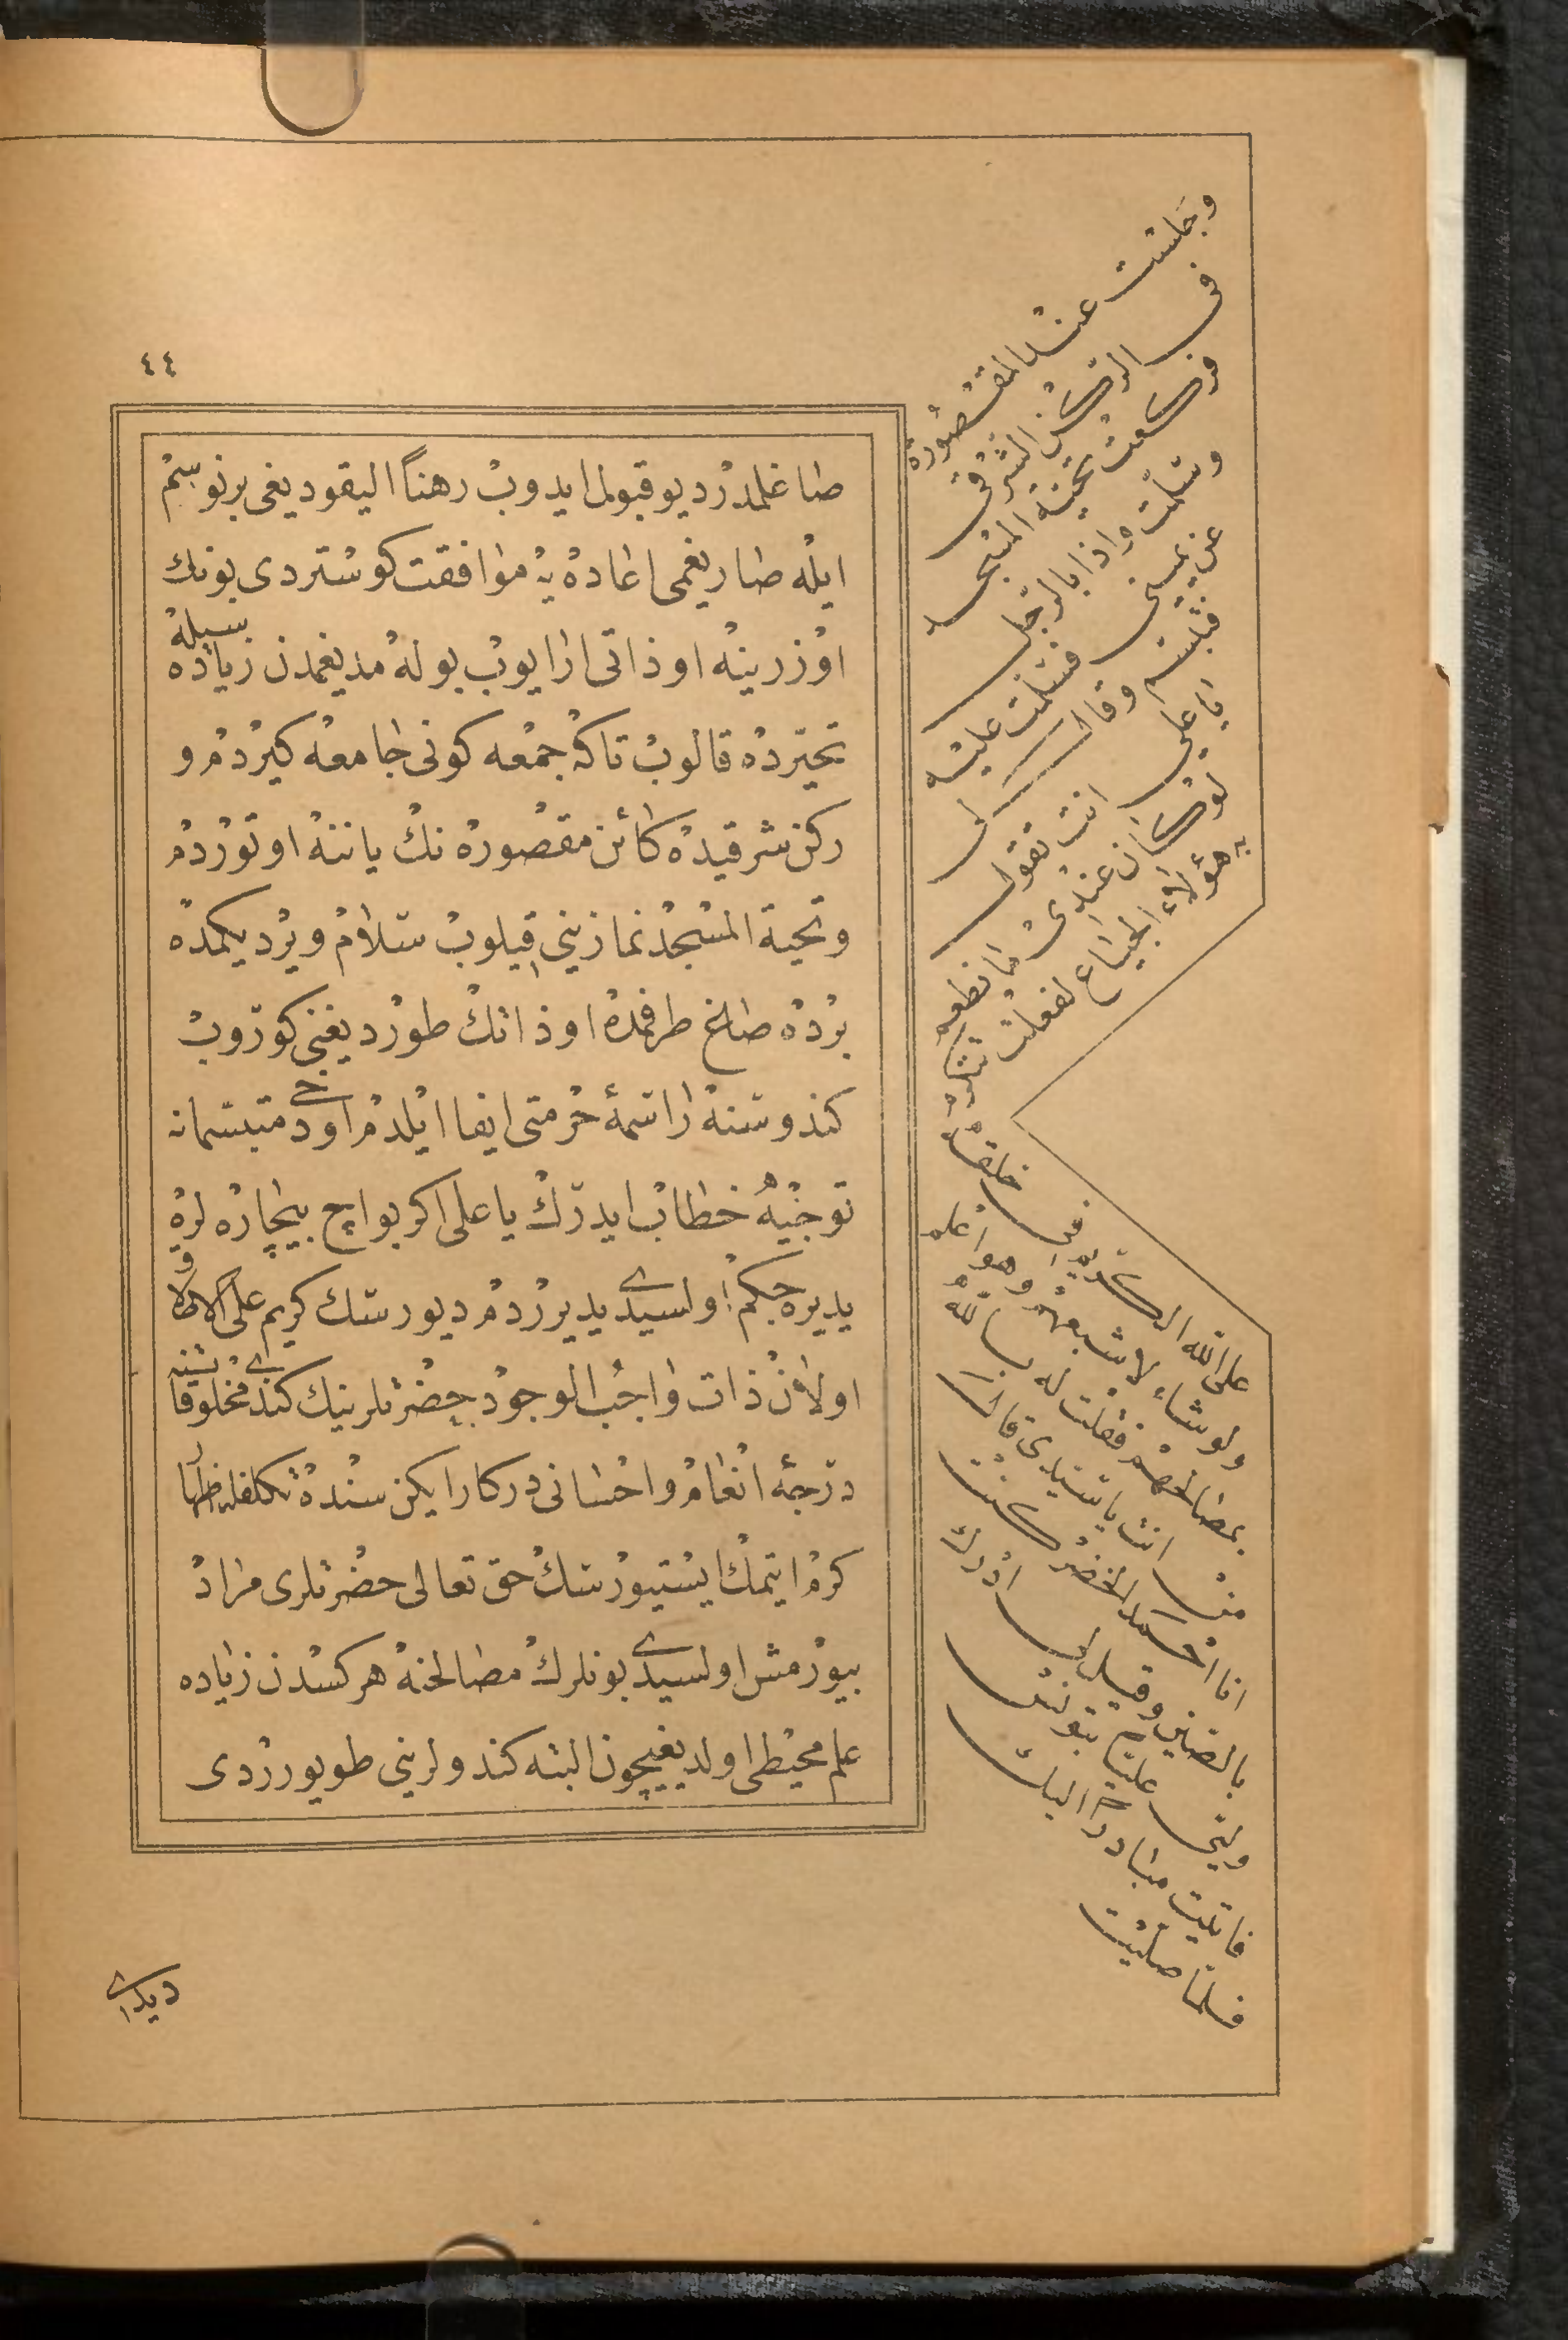 ٤٤
طاغلمدر ديو قبول ايدوب رهنًا اليقوديغى برنوسم
ايله صاريغمى اعاده يه موافقت كوستردى بونك
اوزرينه اوذاتى ارايوب بوله مديغمدن زياده سيله
تحيرده قالوب تاكه جمعه كونى جامعه كيردم و
ركن شرقيده كائن مقصوره نك ياننه اوتوردم
وتحية المسجد نمازينى قيلوب سلام ويرديكمده
برده صاغ طرفمده اوذاتك طورديغنى كوروب
كندوسنه راسمهٔ حرمتى ايفا ايلدم اودخى متبسمانه
توجيه خطاب ايدرك يا على اكر بو اچ بيچاره لره
يديره جكم اولسيدى يديرردم ديورسك كريم على الاطلاق
اولان ذات واجب الوجود حضرتلرينك كندى مخلوقاتنه نه
درجه انعام واحسانى دركار ايكن سنده تكلفله اظهار
كرم ايتمك ايستيورسك حق تعالى حضرتلرى مراد
بيورمش اولسيدى بونلرك مصالحنه هركسدن زياده
علم محيطى اولديغيچون البته كندولرينى طويورردى
وجلست عند المقصورة
فى الركن الشرقى
فركعت تحية المسجد
وسلمت واذا بالرجل
عن يمينى فسلمت عليه
فتبسم وقال لى
يا على انت تقول
لو كان عندى ما نطعم
به هؤلاء الجياع لفعلت تتكرم
على الله الكريم فى خلقه
ولو شاء لاشبعهم وهو اعلم
بمصالحهم فقلت له بالله
من انت يا سيدى قال
انا احمد الخضر كنت
بالصين وقيل لى ادرك
وليى عليا بتونس
فاتيت مبادرا اليك
فلما صليت
ديدى